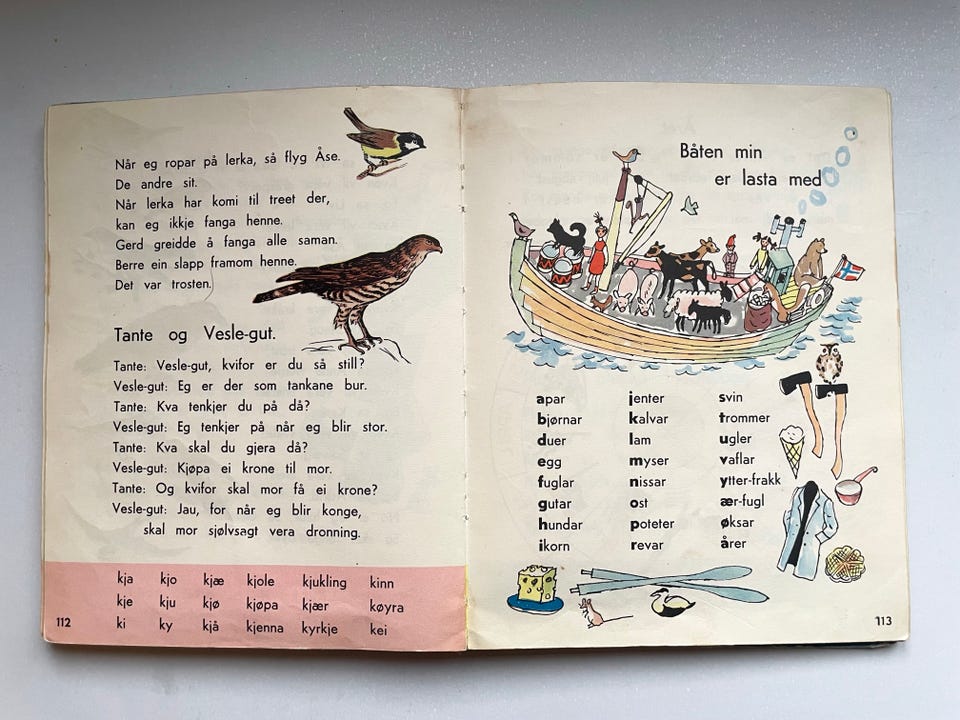 Når eg ropar på lerka, så flyg Åse.
De andre sit.
Når lerka har komi til treet der,
kan eg ikkje fanga henne.
Gerd greidde å fanga alle saman.
Berre ein slapp framom henne.
Det var trosten.
Tante og Vesle-gut.
Tante: Vesle-gut, kvifor er du så still?
Vesle-gut: Eg er der som tankane bur.
Tante: Kva tenkjer du på då?
Vesle-gut: Eg tenkjer på når eg blir stor.
Tante: Kva skal du gjera då?
Vesle-gut: Kjøpa ei krone til mor.
Tante: Og kvifor skal mor få ei krone?
Vesle-gut: Jau, for når eg blir konge,
skal mor sjølvsagt vera dronning.
kja kjo kjæ kjole kjukling kinn
kje kju kjø kjøpa kjær køyra
ki ky kjå kjenna kyrkje kei
112
Båten min
er lasta med
apar
bjørnar
duer
egg
fuglar
gutar
hundar
ikorn
jenter
kalvar
lam
myser
nissar
ost
poteter
revar
svin
trommer
ugler
vaflar
ytter-frakk
ær-fugl
øksar
årer
113